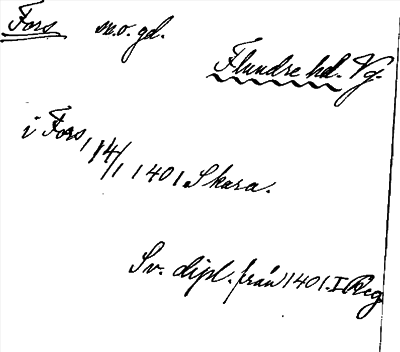 Fors sn. o. gd.
Flundre hd. Vg.
i Fors, 14/1 1401 Skara.
Sv. dipl. från 1401. I Reg